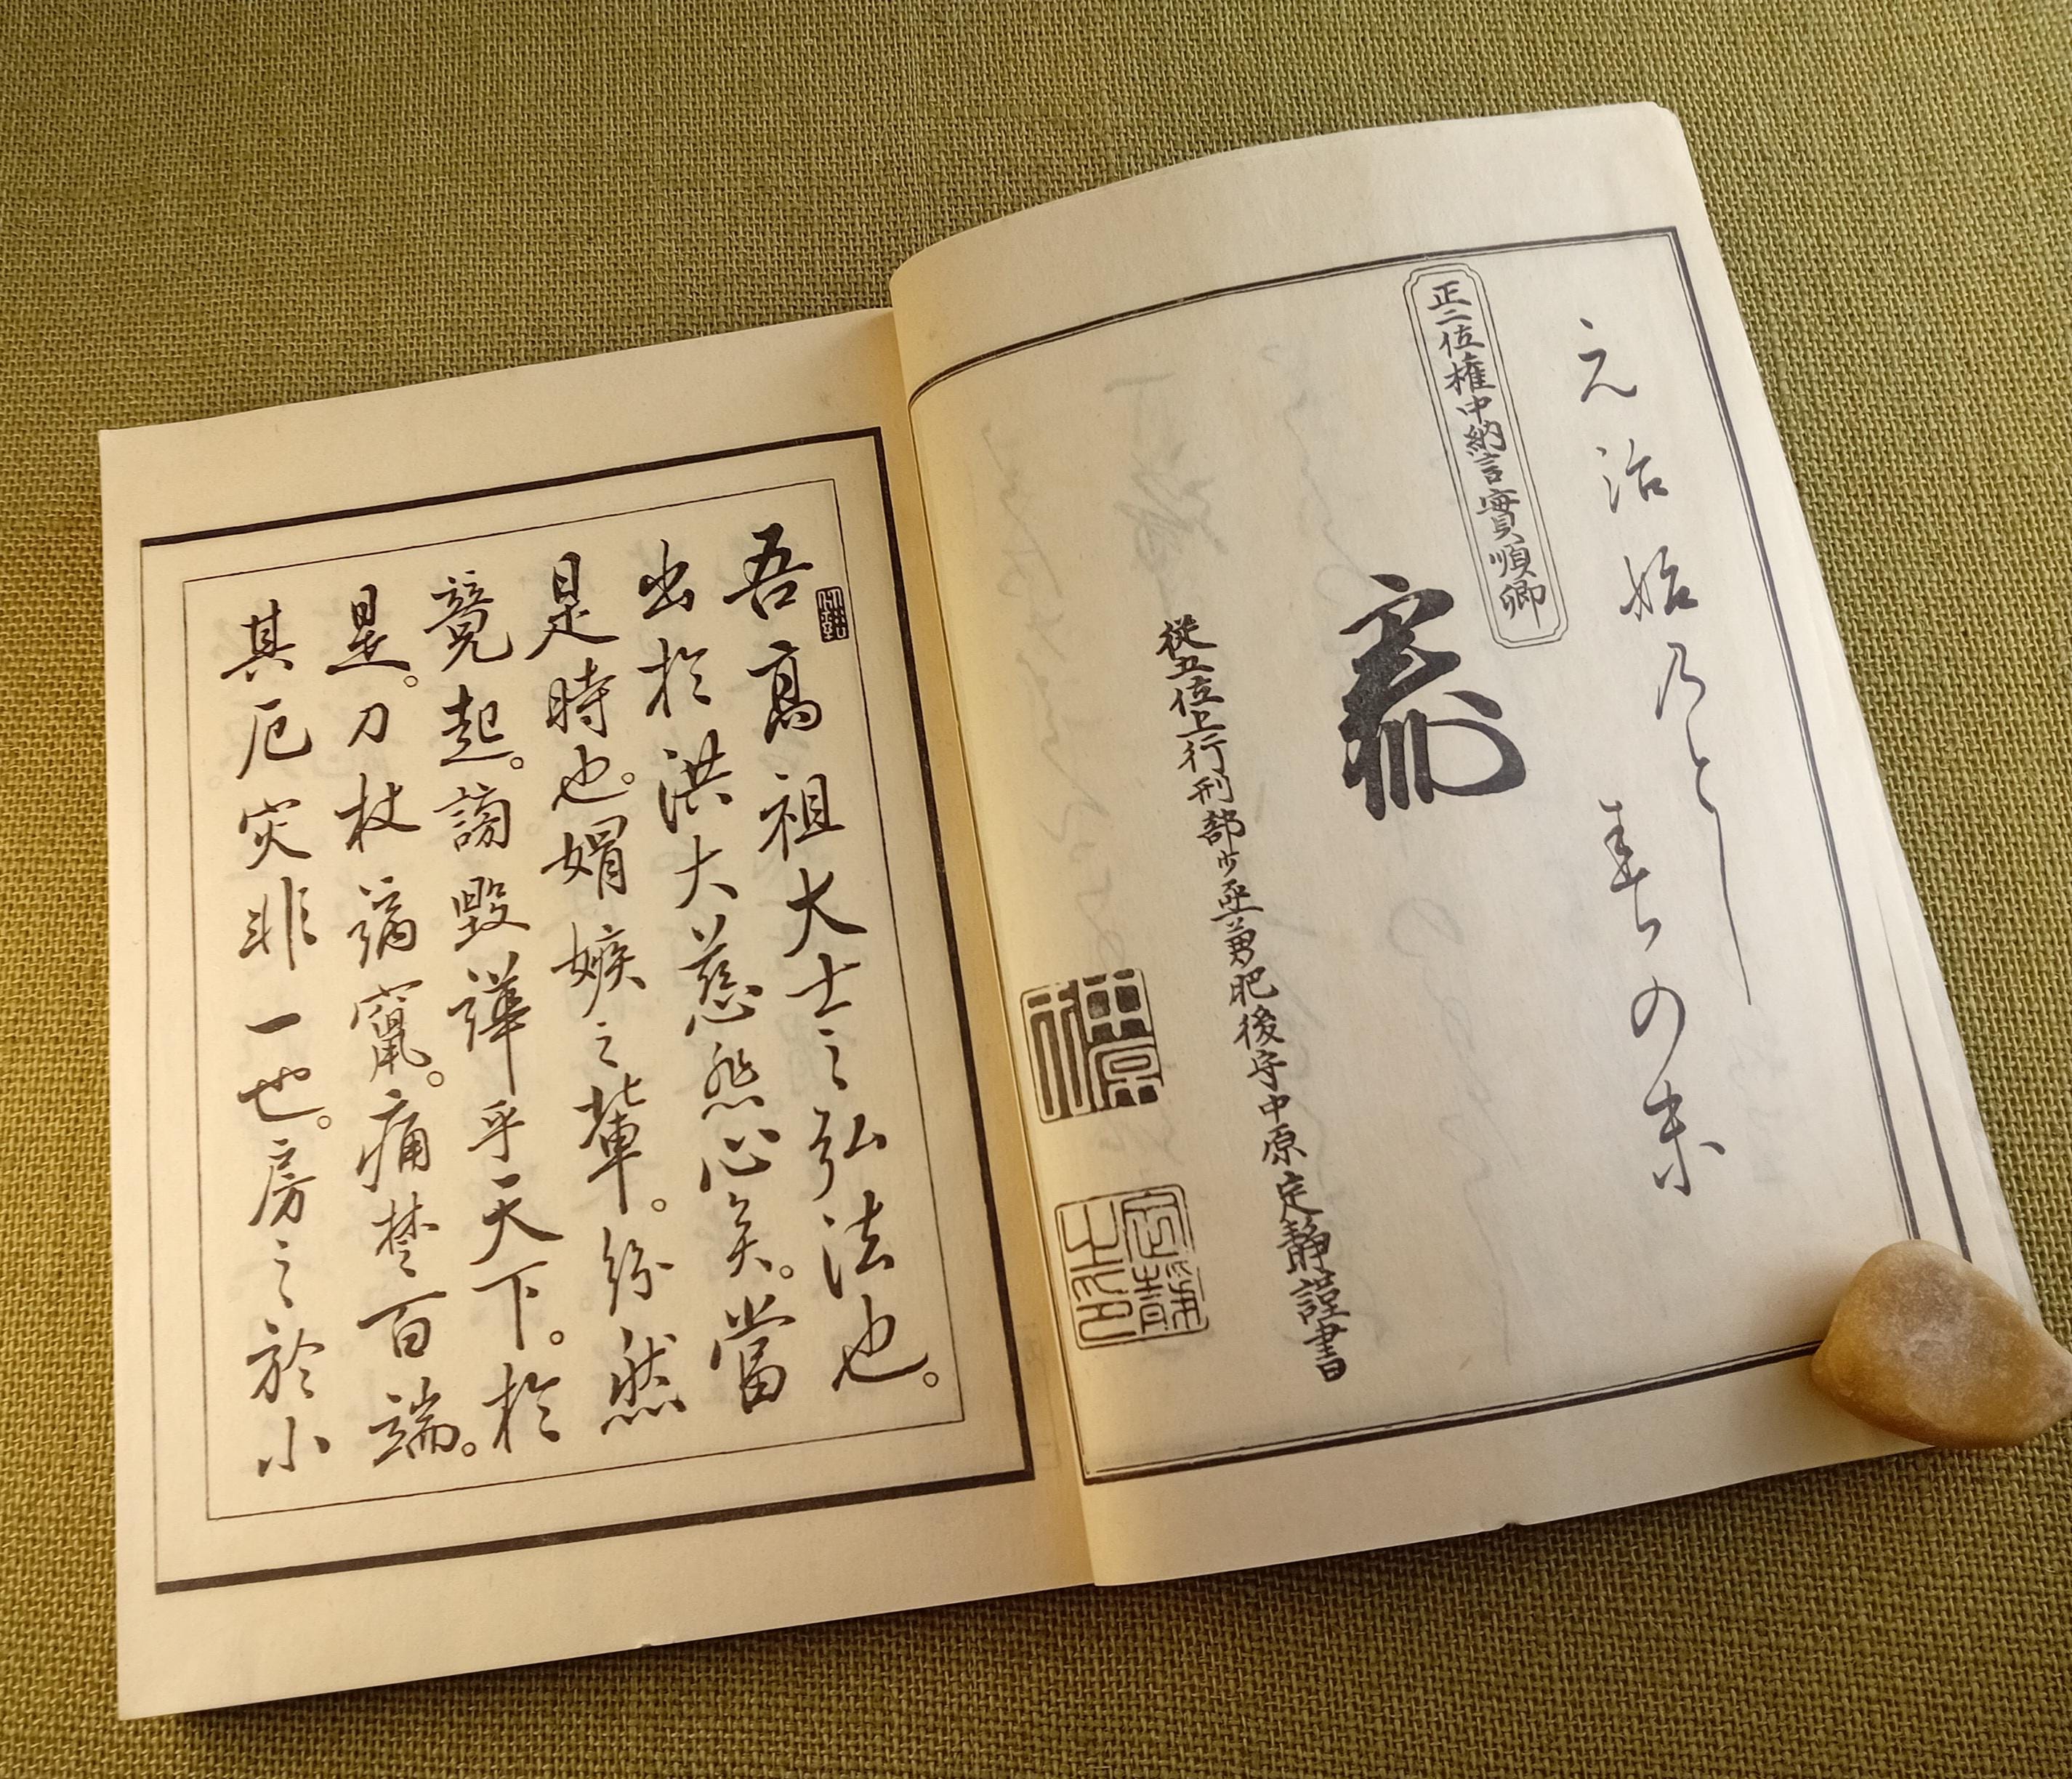 元治始乃とし
春の末
正二位権中納言實順卿
従五位上行刑部少丞兼肥後守中原定静謹書
中原
定静之印
吾高祖大士之弘法也。
出於洪大慈悲心矣。當
是時也。媢嫉之輩。紛然
競起。謗毀譁乎天下。於
是。刀杖謫竄。痛楚百端。
其厄灾非一也。房之於小